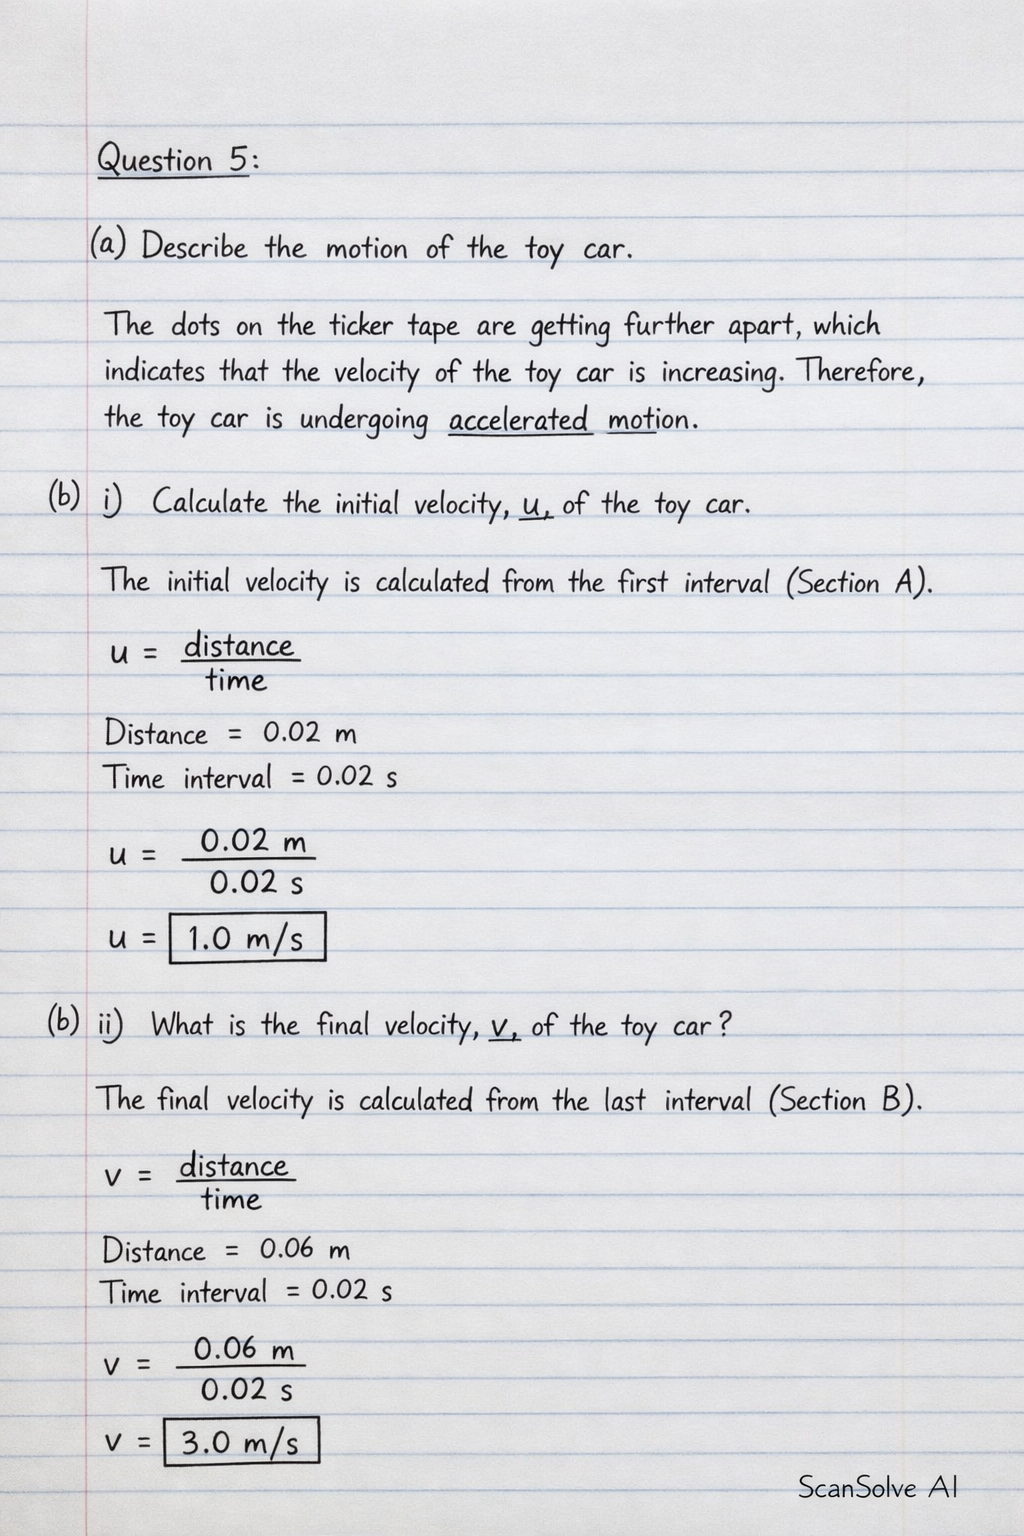 Question 5:
(a) Describe the motion of the toy car.
The dots on the ticker tape are getting further apart, which
indicates that the velocity of the toy car is increasing. Therefore,
the toy car is undergoing accelerated motion.
(b) i) Calculate the initial velocity, u, of the toy car.
The initial velocity is calculated from the first interval (Section A).
u = distance
time
Distance = 0.02 m
Time interval = 0.02 s
u = 0.02 m
0.02 s
u = 1.0 m/s
(b) ii) What is the final velocity, v, of the toy car?
The final velocity is calculated from the last interval (Section B).
v = distance
time
Distance = 0.06 m
Time interval = 0.02 s
v = 0.06 m
0.02 s
v = 3.0 m/s
ScanSolve AI